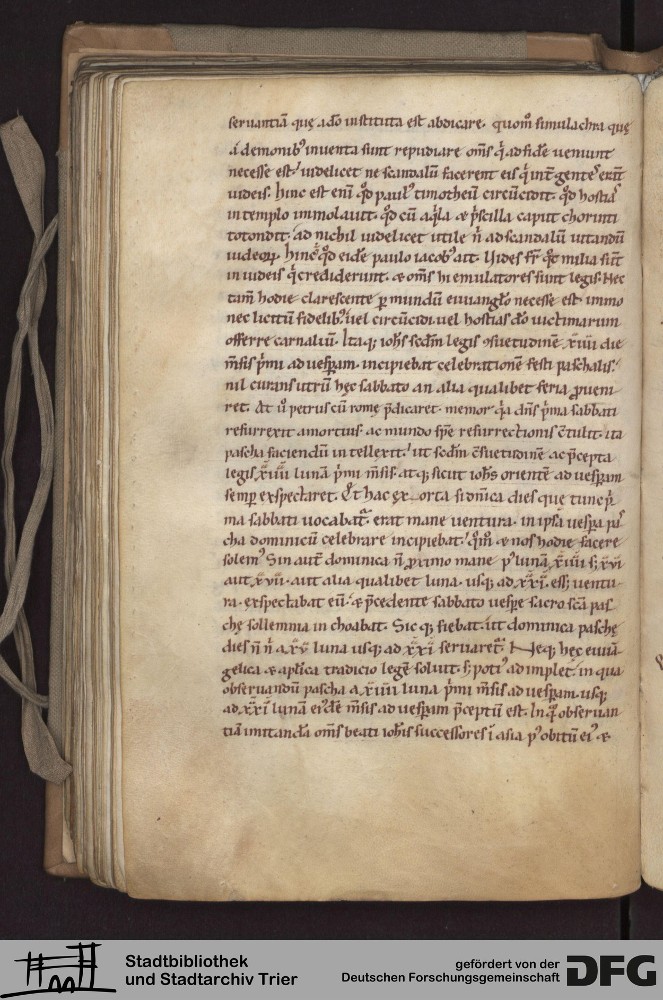 seruantiā quę a dō instituta est abdicare. quom̄ simulachra quę
a demonib; inuenta sunt repudiare om̄s q̇ ad fidē ueniunt
necesse est. uidelicet ne scandalū facerent eis q̇ int̄ gentes erāt
iudeis. hinc est enī qd̄ paul᷒ timotheū circūcidit. qd̄ hostias
in templo immolauit. qd̄ cū aq̇la & p̄scilla caput chorinti
totondit. ad nichil uidelicet utile n̄ ad scandalū uitandū
iudeoꝝ. hinc qd̄ eidē paulo iacob᷒ ait. Uides fr̄ qͦt milia sūt
in iudeis q̇ crediderunt. & om̄s hi emulatores sunt legis. Nec
tam̄ hodie clarescente ꝑ mundū euuanglō necesse est. immo
nec licitū fidelib;. uel circūcidi. uel hostias dō uictimarum
offerre carnaliū. Itaq; ioh̄s scd̄m legis ↄsuetudinē xiiii die
m̄sis p̍mi ad uesꝑam. incipiebat celebrationē festi paschalis.
nil curans utrū hęc sabbato an alia qualibet feria ꝓueni
ret. At ů petrus cū romę p̄dicaret. memor q̍a dn̄s p̍ma sabbati
resurrexit a mortuis. ac mundo spē resurrectionis ↄtulit. ita
pascha faciendū intellexit. ut scd̄m ↄsuetudinē ac p̄cepta
legis xiiii lunā p̍mi m̄sis. atq; sicut ioh̄s orientē ad uesꝑam
semꝑ exspectaret. Et hac exorta si dn̄ica dies que tunc p̍
ma sabbati uocabat᷑. erat mane uentura. in ipsa uesꝑa pas
cha dominicū celebrare incipiebat. qͦm̄ & nos hodie facere
solem᷒. Sin aut̄ dominica n̄ ꝓximo mane p᷒ lunā xiiii s; xvi
aut xvii. aut alia qualibet luna. usq; ad xxi. ess& uentu
ra. exspectabat eū. & p̄cedente sabbato uesꝑe sacro scā pas
chę sollemnia inchoabat. Sicq; fiebat. ut dominica paschę
dies n̄ n̄ a xv luna usq; ad xxi seruaret᷑. Neq; hęc euuā
gelica & apl̄ica tradicio legē soluit. s; poti᷒ adimplet. in qua
obseruandū pascha a xiiii luna p̍mi m̄sis ad uesꝑam. usq;
ad xxi lunā ei᷒dē m̄sis ad uesꝑam p̄ceptū est. In qͣ obseruan
tiā imitandā om̄s beati ioh̄is successores ī asia p᷒ obitū ei᷒ &
Stadtbibliothek
und Stadtarchiv Trier
gefördert von der
Deutschen Forschungsgemeinschaft
DFG